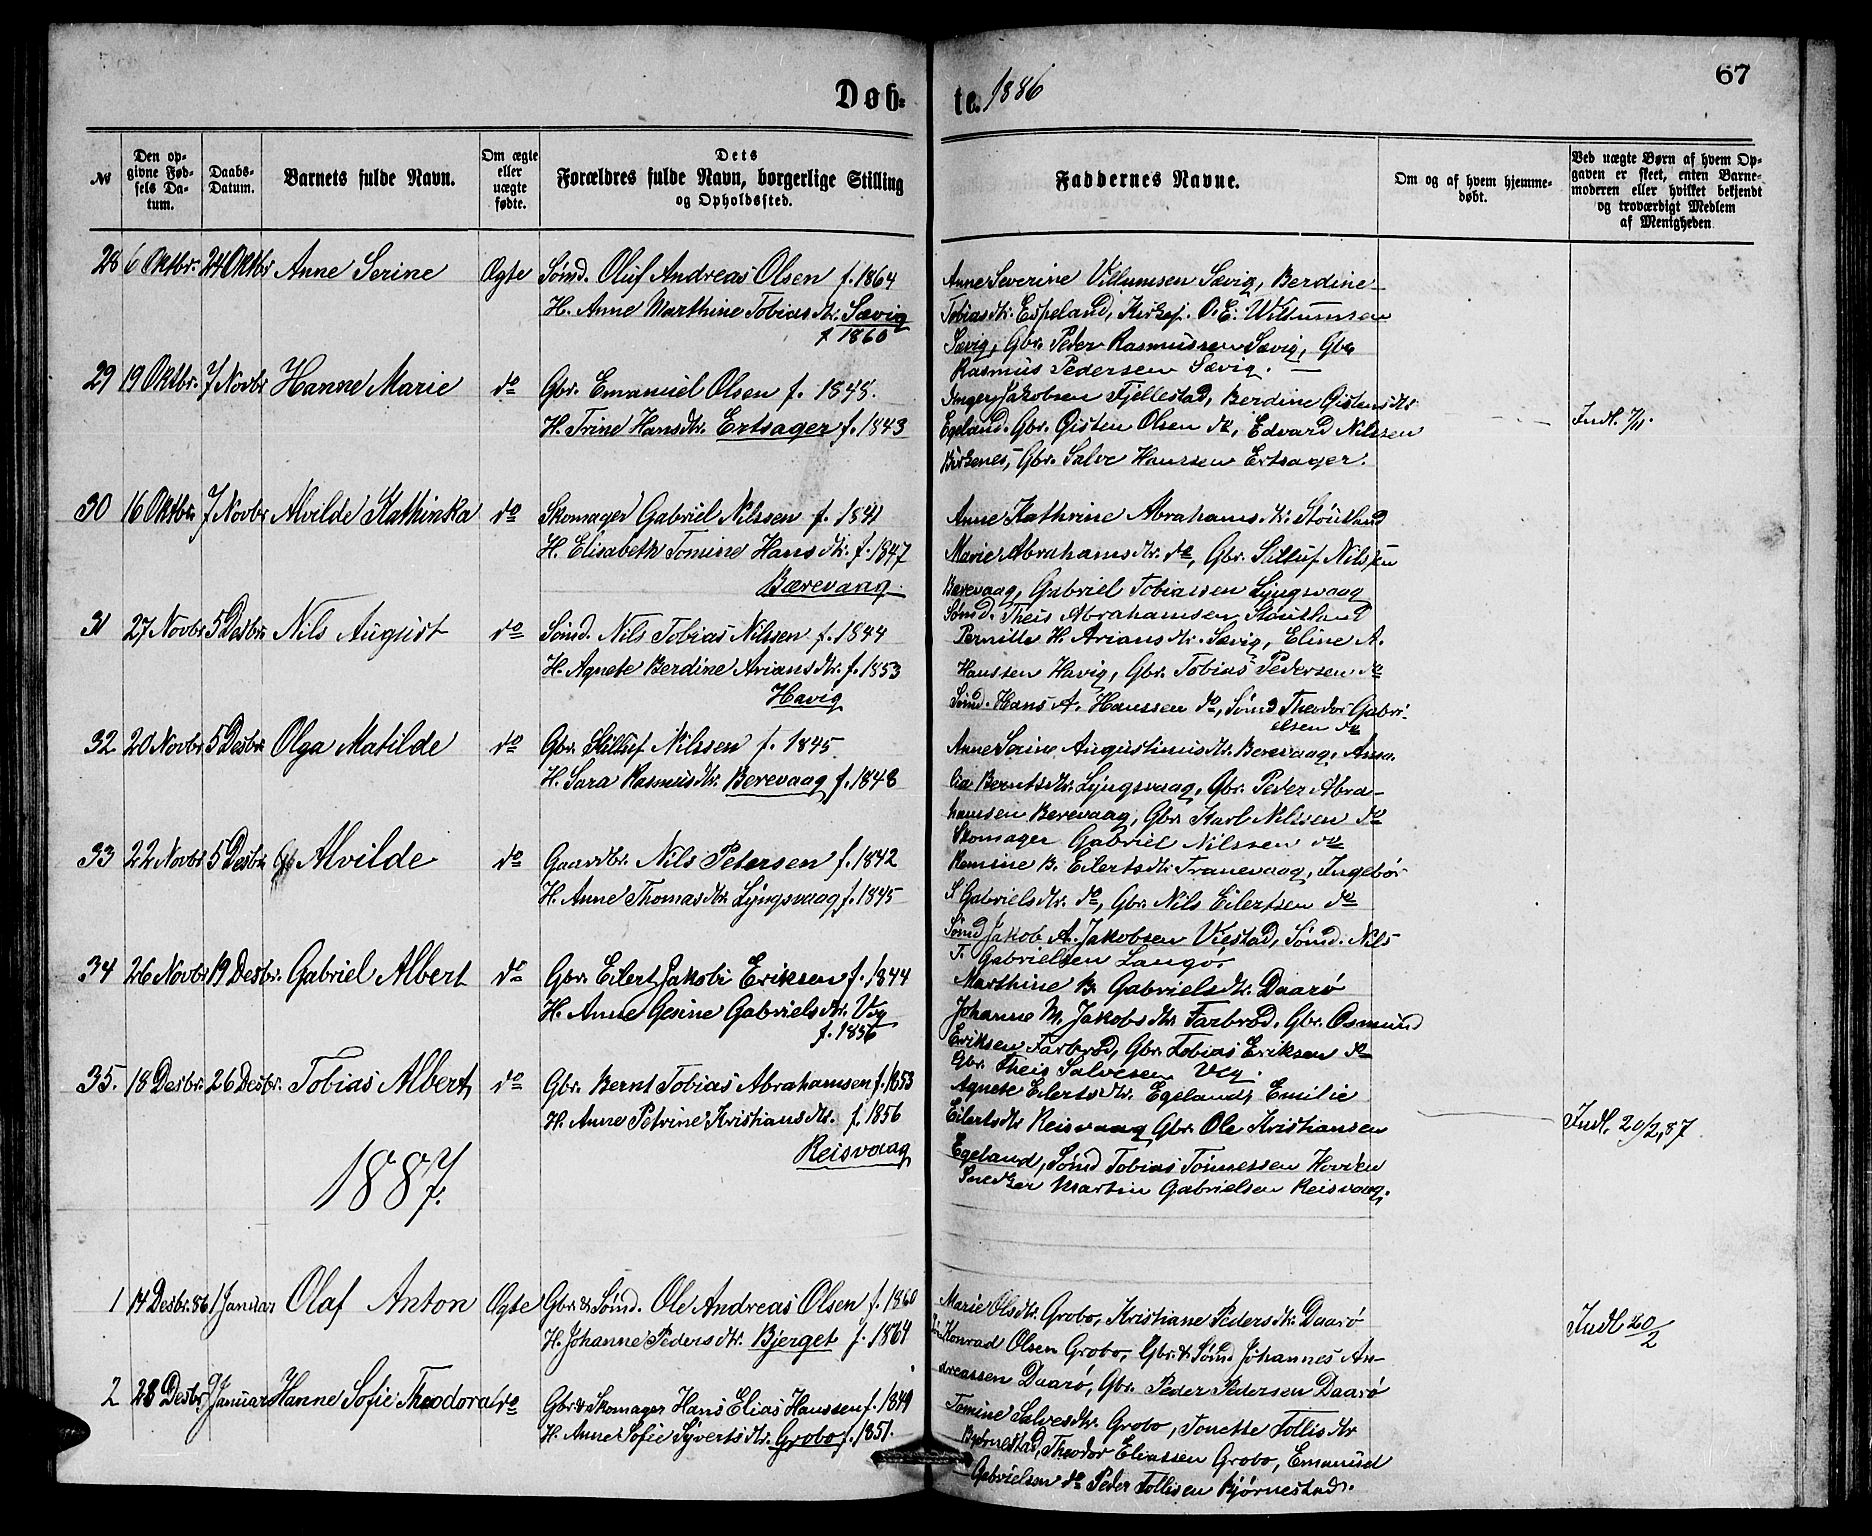 67
Døb- te. 1886
№
Den op-
givne Fød-
sels Da-
tum.
Daabs-
Datum.
Barnets fulde Navn.
Om ægte
eller
uægte
fødte.
Dets
Forældres fulde Navn, borgerlige Stilling
og Opholdssted.
Faddernes Navne.
Om og af hvem hjemme-
døbt.
Ved uægte Børn af hvem Op-
gaven er skeet, enten Barne-
moderen eller hvilket bekjendt
og troværdigt Medlem
af Menigheden
28 6 Oktbr. 24 Oktbr Anne Serine Ægte Sømd. Oluf Andreas Olsen f. 1864
H. Anne Marthine Tobiasdtr. Sævig
f 1860
Anne Severine Villumsen Sævig, Berdine
Tobiasdtr. Espeland, Kirkesj. O. E. Willumsen
Sævig, Gbr. Peder Rasmussen Sævig, Gbr
Rasmus Pedersen Sævig.
29 19 Oktbr. 7 Novbr Hanne Marie do Gbr. Emanuel Olsen f. 1845.
H. Trine Hansdtr. Ertsager f. 1843
Inger Jakobsen Fjellestad, Berdine Gistensdtr
Egeland. Gbr. Gisten Olsen do, Edvard Nilssen
Birkenes, Gbr. Salve Hanssen Ertsager.
Indl. 7/11.
30 16 Oktbr 7 Novbr Alvilde Kathinka do Skomager Gabriel Nilssen f. 1841
H. Elisabeth Tomine Hansdtr. f. 1847
Bærevaag.
Anne Kathrine Abrahamsdtr. Stoutland
Marie Abrahamsdtr. do, Gbr. Sittuf Nilssen
Berevaag, Gabriel Tobiassen Lyngsvaag
Sømd. Theis Abrahamsen Stoutland
31 27 Novbr 5 Desbr Nils August do Sømd. Nils Tobias Nilssen f. 1844
H. Agnete Berdine Ariansdtr. f. 1853
Havig
Pernille H. Ariansdtr. Sævig, Eline A.
Hanssen Havig, Gbr. Tobias Pedersen do
Sømd. Hans A. Hanssen do, Sømd Theodor Gabri-
elsen do
32 20 Novbr 5 Desbr Olga Matilde do Gbr. Sittuf Nilssen f. 1845
H. Sara Rasmusdtr. Berevaag f. 1848
Anne Serine Augustinusdtr. Berevaag, Ama-
lia Berntsdtr. Lyngsvaag, Gbr. Peder Abra-
hamsen Berevaag, Gbr Karl Nilssen do
Skomager Gabriel Nilssen do
33 22 Novbr 5 Desbr Alvilde do Gaardbr. Nils Petersen f. 1842
H. Anne Thomasdtr. Lyngsvaag f. 1845
Ramine B. Eilertsdtr. Tranevaag, Ingebor
S Gabrielsdtr. do, Gbr. Nils Eilertsen do
Sømd Jakob A. Jakobsen Viestad, Sømd. Nils
T. Gabrielsen Langø.
34 26 Novbr 19 Desbr. Gabriel Albert do Gbr. Eilert Jakobi Eriksen f. 1844
H. Anne Gesine Gabrielsdtr. Veg
f. 1856
Marthine B. Gabrielsdtr. Daarø
Johanne M. Jakobsdtr Farbrød, Gbr. Osmund
Eriksen Farbrød, Gbr. Tobias Eriksen do
Gbr. Theis Salvesen Veg.
35. 18 Desbr. 26 Desbr. Tobias Albert do Gbr. Bernt Tobias Abrahamsen f. 1853
H. Anne Petrine Kristiansdtr. f. 1856
Reisvaag
Agnete Eilertsdtr. Egeland, Emilie
Eilertsdtr Reisvaag Gbr. Ole Kristiansen
Egeland, Sømd Tobias Tønnessen Hoviken
Snedker Martin Gabrielsen Reisvaag.
Indl. 20/2, 87
1887.
1 14 Desbr. 86 1 Januar Olaf Anton Ægte Gbr. & Sømd. Ole Andreas Olsen f. 1860
H. Johanne Pedersdtr. Bjerget f. 1864
Marie Olsdtr. Grobo, Kristiane Pedersdtr. Daarø
Konrad Olsen Grobo, Gbr. & Sømd Johannes An-
dreassen Daarø, Gbr. Peder Pedersen Daarø
Indl 20/2
2 28 Desbr 9 Januar Hanne Sofie Theodora do Gbr & Skomager Hans Elias Hanssen f. 1849
H. Anne Sofie Syvertsdtr. Grobo f. 1851.
Tomine Salvesdtr. Grobo, Tonette Tollisdtr
Bjørnestad, Theodor Eliassen Grobo, Emanuel
Gabrielsen do Peder Tollisen Bjørnestad.